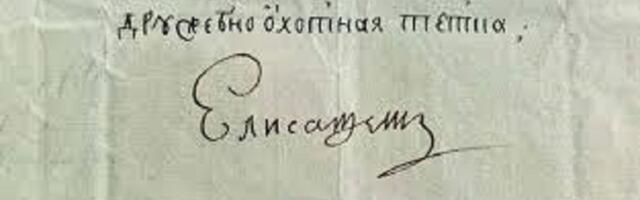 дружебно охотная тетка,
Елисаветъ